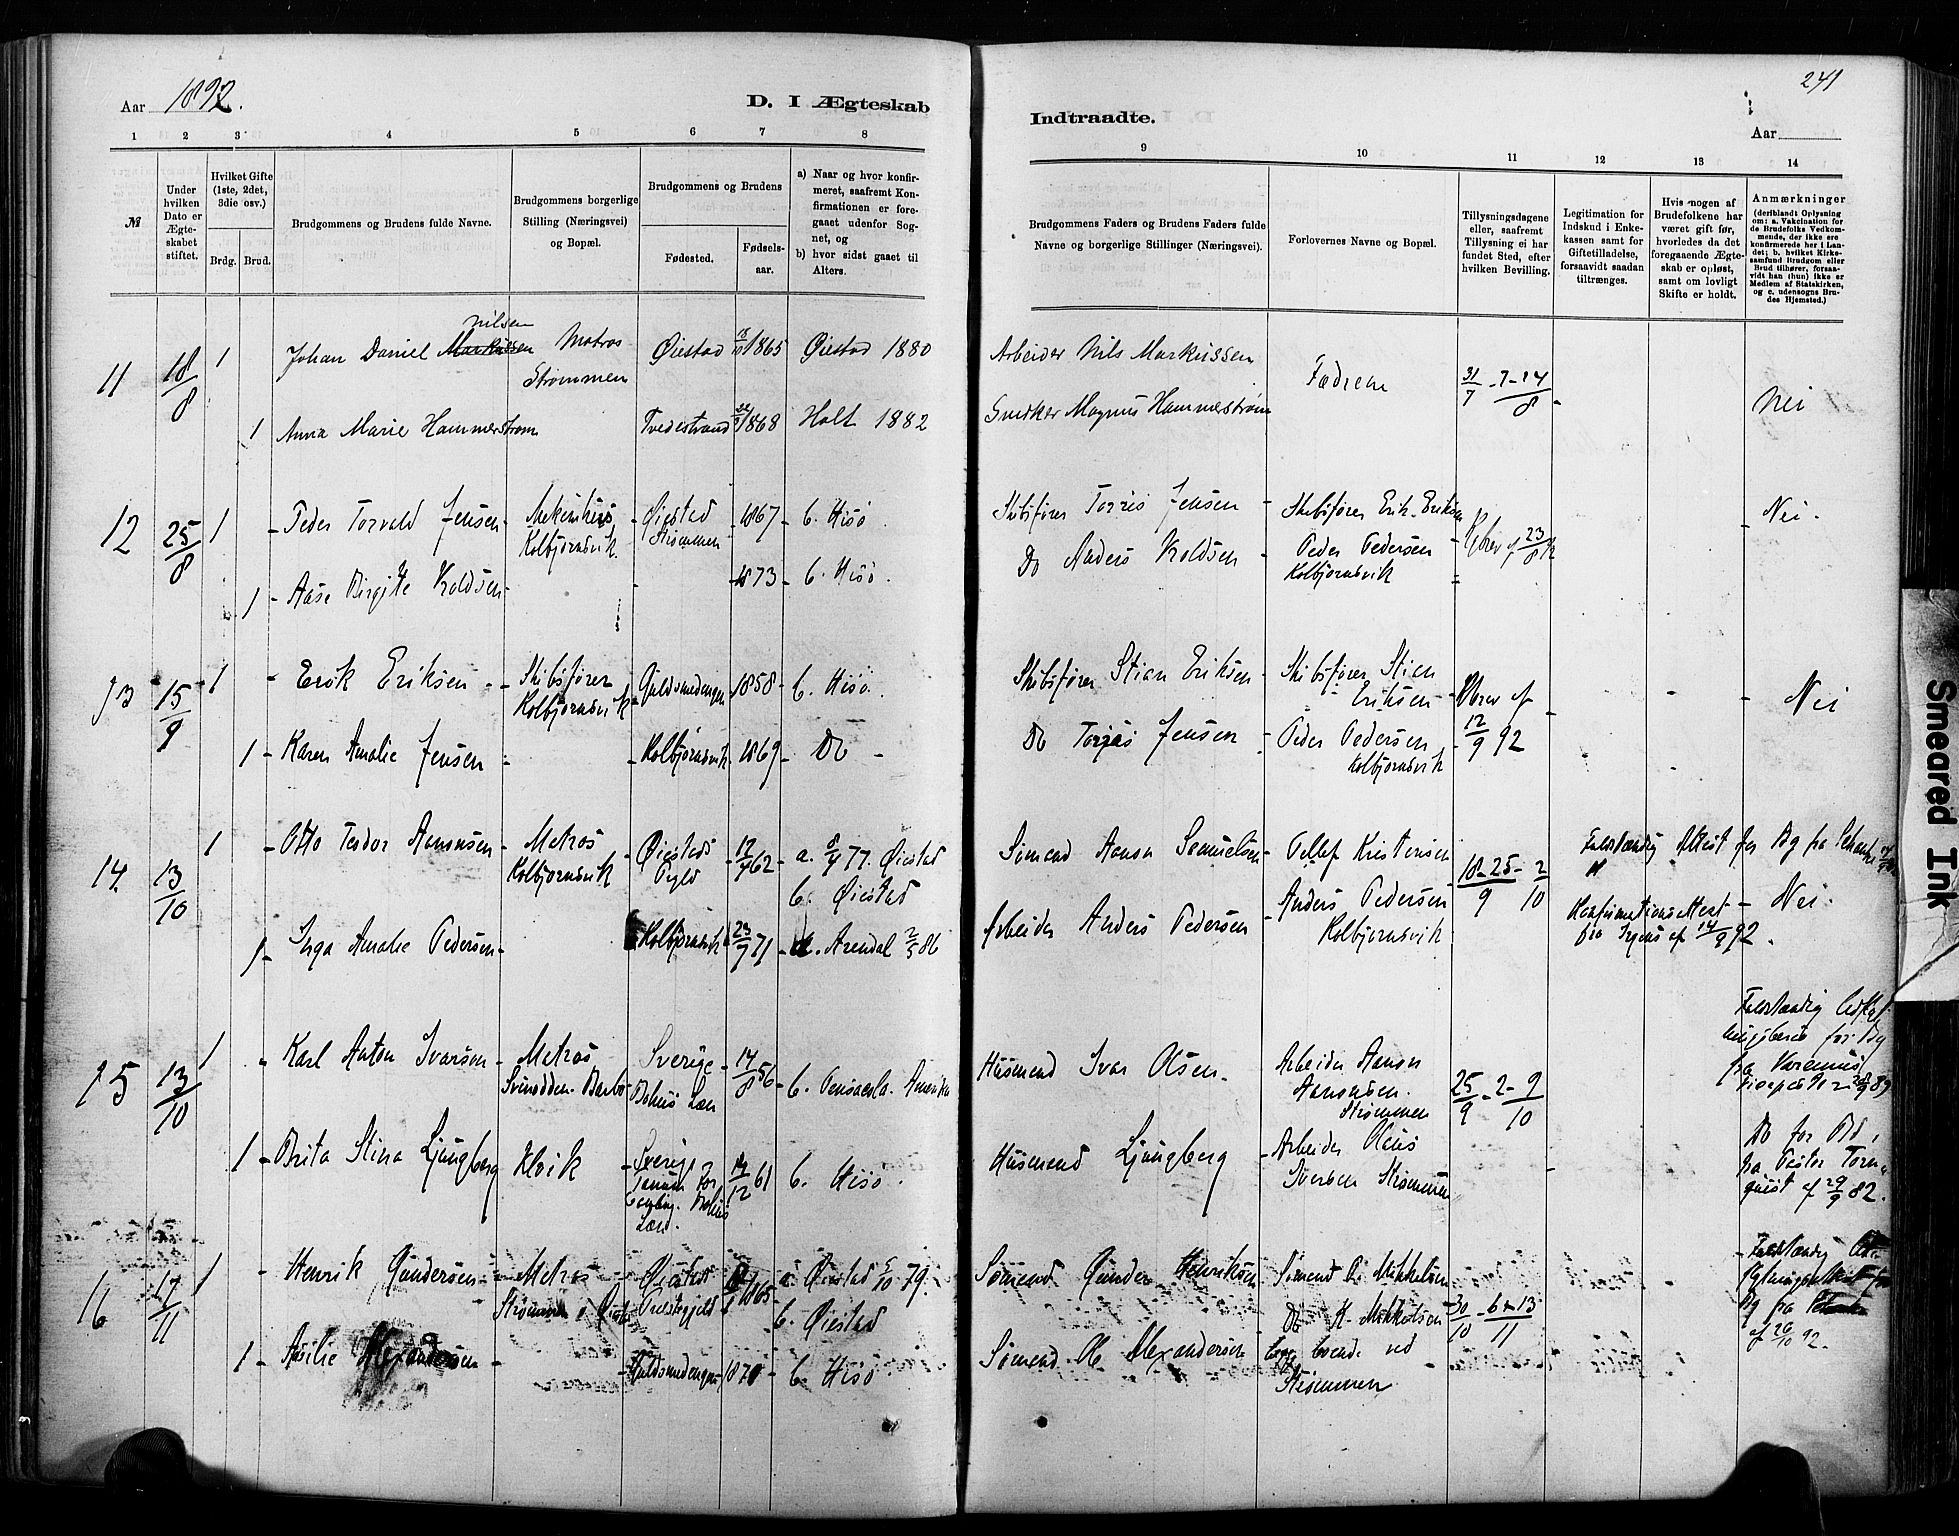 241
Aar 1892.
D. I Ægteskab
Indtraadte.
Aar
1 2 3 4 5 6 7 8
9 10 11 12 13 14
№
Under hvilken Dato er Ægteskabet stiftet.
Hvilket Gifte (1ste, 2det, 3die osv.)
Brdg. Brud.
Brudgommens og Brudens fulde Navne.
Brudgommens borgerlige Stilling (Næringsvei) og Bopæl.
Brudgommens og Brudens
Fødested.
Fødselsaar.
a) Naar og hvor konfirmeret, saafremt Konfirmationen er foregaaet udenfor Sognet, og
b) hvor sidst gaaet til Alters.
Brudgommens Faders og Brudens Faders fulde Navne og borgerlige Stillinger (Næringsvei).
Forlovernes Navne og Bopæl.
Tillysningsdagene eller, saafremt Tillysning ei har fundet Sted, efter hvilken Bevilling.
Legitimation for Indskud i Enkekassen samt for Giftetilladelse, forsaavidt saadan tiltrænges.
Hvis nogen af Brudefolkene har været gift før, hvorledes da det foregaaende Ægteskab er opløst, samt om lovligt Skifte er holdt.
Anmærkninger
(deriblandt Oplysning om: a. Vakcination for de Brudefolks Vedkommende, der ikke ere konfirmerede her i Landet; b. hvilket Kirkesamfund Brudgom eller Brud tilhører, forsaavidt han (hun) ikke er Medlem af Statskirken, og c. udensogns Brudes Hjemsted.)
11 18/8 1 Johan Daniel Markussen Nilsen Matros Strømmen Øiestad 1865 Øiestad 1880
Arbeider Nils Markussen Fædrene 31/7 - 7 - 14/8 - Nei
1 Anna Marie Hammerstrøm Tvedestrand 1868 Holt 1882
Snedker Magnus Hammerstrøm
12 25/8 1 - Peder Torvald Jensen - Kolbjørnsvik - Øiestad Strømmen - 1867 - b. Hisø
Skibsfører Jensen - Skibsfører Erik Eriksen 23/8 Nei.
1 - Aase Birgitte Koldsen - 1873 - b. Hisø.
Do Anders Koldsen - Peder Pedersen Kolbjørnsvik
13 15/9 1 - Erik Eriksen - Skibsfører Kolbjørnsvik - Guldsmedengen - 1858 - b. Hisø.
Skibsfører Stian Eriksen - Skibsfører Stian Eriksen - Kbrev af 12/9 92 - Nei
1 - Karen Amalie Jensen - Kolbjørnsvik - 1869 - Do -
Do Jensen - Peder Pedersen Kolbjørnsvik
14 13/10 1 - Otto Teodor Aanonsen - Matros Kolbjørnsvik - Øiestad - 62 - a. 8/4 77. Øiestad b. Øiestad
Sømand Aanon Samuelsen - Tellef Kristensen 18 - 25/9 - 2/10 Fuldstændig Attest for Bg fra
1 - Inga Amalie Pedersen - Kolbjørnsvik - 23/7 71 - a. Arendal 2/5 86
Arbeider Anders Pedersen - Anders Pedersen Kolbjørnsvik Konfirmationsattest fra af 14/9 92. - Nei.
15 13/10 1 - Karl Anton Ivarson - Matros - Barbo - Sverige Bohus Len 14/8 56 - b. Pensacola. Amerika
Husmand Ivar Olsen - Arbeider Aanon Aanonsen. Strømmen 25/9 - 2 - 9/10
Fuldstændig for Bg fra
1 - Brita Stina Ljungberg Klvik - Sverige Bohus Len. 12 61 - b. Hisø.
Husmand Ljungberg - Arbeider Strømmen - Do for Bd, fra Pastor af 29/9 82.
16 17/11 1 - Henrik Gundersen - Matros - Strømmen i Øiestad - Øiestad 1865 - a. Øiestad 5/10 79. b. Øiestad
Sømand Gunder Henriksen Sømand O. Mikkelsen Do K. Mikkelsen 30/10 - 6 - 13/11
- Fuldstændig Bg fra af 26/10 92.
1 - Alexandersen - Guldsmedengen - 1870 - b. Hisø -
Sømand Ole Alexandersen begge boende ved Strømmen
Smeared Ink